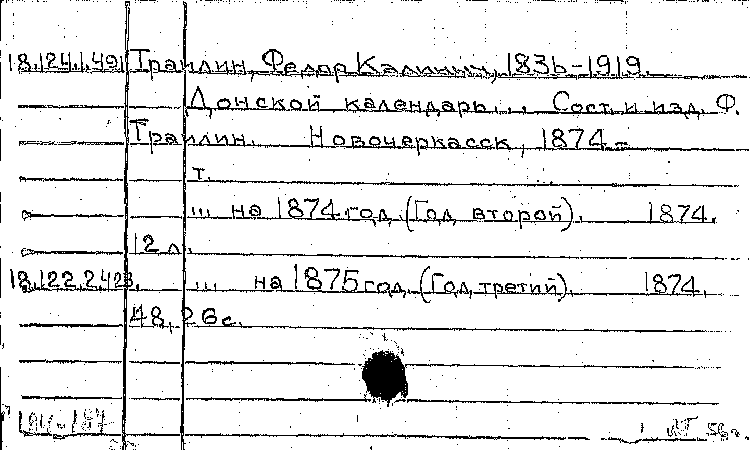 18.124.1.491 Траилин, Федор Калинич, 1836-1919.
Донской календарь... Сост. и изд. Ф.
Траилин. Новочеркасск, 1874-
т.
... на 1874 год. (Год второй). 1874.
12 л.
18.122.2.423. ... на 1875 год. (Год третий). 1874.
48, 26 с.
56 г.